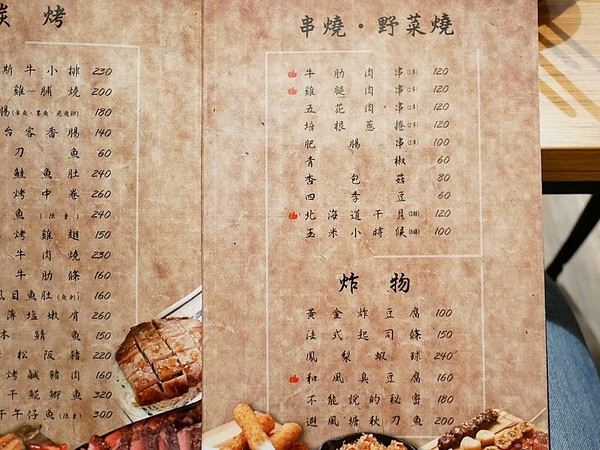 炭 烤
斯牛小排 230
雞脯燒 200
腸 180
台客香腸 140
刀魚 60
鮭魚肚 240
烤中卷 260
魚(限量) 240
烤雞翅 150
牛肉燒 230
牛肋條 160
虱目魚肚 160
薄塩嫩肩 260
本鯖魚 150
松阪豬 220
烤鹹豬肉 160
干魷鯽魚 320
干午仔魚(限量) 300
串燒・野菜燒
牛肋肉串(2串) 120
雞腿肉串(2串) 120
五花肉串(2串) 120
培根蔥捲(2串) 120
肥腸串(2串) 100
青椒 60
杏包菇 80
四季豆 60
北海道干貝(3顆) 120
玉米小時候 100
炸物
黃金炸豆腐 100
法式起司條 150
鳳梨蝦球 240
和風臭豆腐 160
不能說的秘密 180
避風塘秋刀魚 200